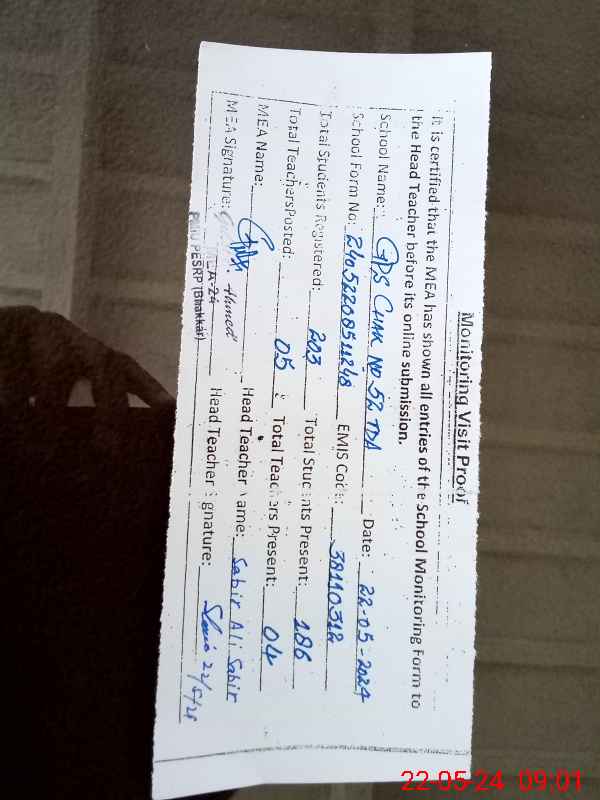 Monitoring Visit Proof
It is certified that the MEA has shown all entries of the School Monitoring Form to
the Head Teacher before its online submission.
School Name: GPS CHAK NO. 52 TDA Date: 22-05-2024
School Form No: EMIS Code: 38110312
Total Students Registered: 203 Total Students Present: 186
Total Teachers Posted: 05 Total Teachers Present: 04
MEA Name: Head Teacher Name: Sabir Ali Sabir
MEA Signature: Ahmed Head Teacher Signature: 22/5/24
MEA-24
PMIU PESRP (Bhakkar)
22-05-24 09:01